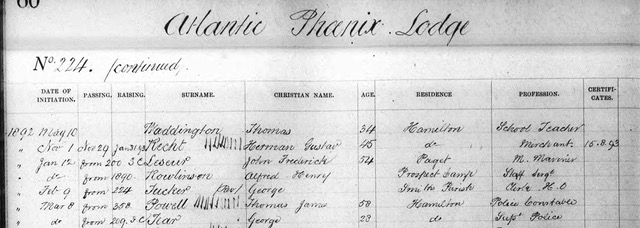 60
Atlantic Phœnix Lodge
No. 224. (continued)
DATE OF INITIATION. PASSING. RAISING. SURNAME. CHRISTIAN NAME. AGE. RESIDENCE PROFESSION. CERTIFICATES.
1892 May 10 Waddington Thomas 34 Hamilton School Teacher
" Nov 1 Nov 29 Jan 31 93 Hecht Herman Gustav 45 do Merchant 15.8.93
" Jan 12 from 200 S C Leseur John Frederick 54 Paget M. Mariner
" do from 1890 Rowlinson Alfred Henry Prospect Camp Staff Sergt
" Feb 9 from 224 Tucker George Smiths Parish Clerk
" Mar 8 from 358 Powell Thomas James 58 Hamilton Police Constable
" do from 209 S C Tear George 23 do Police